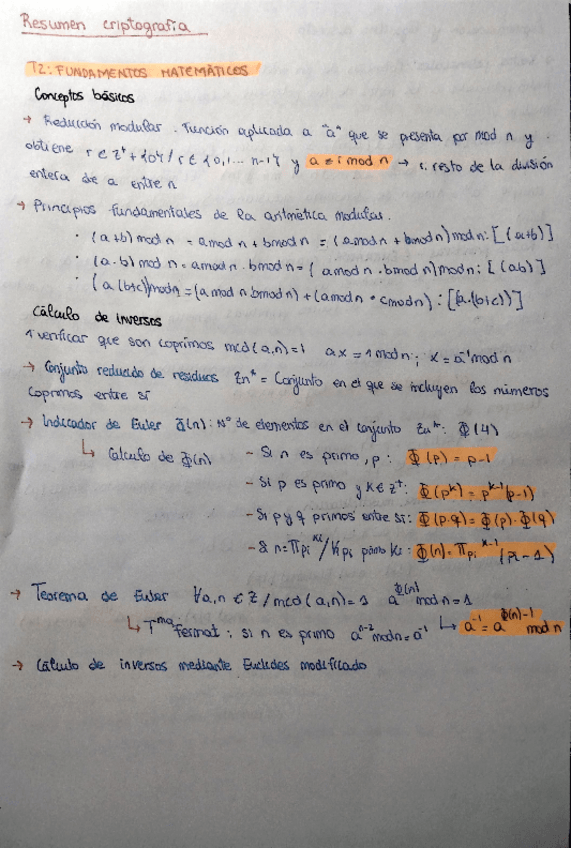 Resumen criptografía
T2: FUNDAMENTOS MATEMÁTICOS
Conceptos básicos
→ Reducción modular. Función aplicada a "a" que se presenta por mod n y
obtiene r ∈ Z⁺ + {0} / r ∈ {0,1... n-1} y a = r mod n → r: resto de la división
entera de a entre n
→ Principios fundamentales de la aritmética modular.
· (a+b) mod n = a mod n + b mod n = (a mod n + b mod n) mod n: [(a+b)]
· (a·b) mod n = a mod n · b mod n = (a mod n · b mod n) mod n; [(ab)]
(a(b+c)) mod n = (a mod n b mod n) + (a mod n · c mod n) : [(a·(b+c))]
Cálculo de inversos
1 verificar que son coprimos mcd(a,n)=1 ax = 1 mod n; x = a⁻¹ mod n
→ Conjunto reducido de residuos Zn* = Conjunto en el que se incluyen los números
coprimos entre sí
→ Indicador de Euler Φ(n): Nº de elementos en el conjunto Zn*: Φ(4)
↳ Calculo de Φ(n) - Si n es primo, p: Φ(p) = p-1
- Si p es primo y k ∈ Z⁺: Φ(pᵏ) = pᵏ⁻¹(p-1)
- Si p y q primos entre sí: Φ(p·q) = Φ(p)·Φ(q)
- Si n = πpi^ki / ∀pi primo ki: Φ(n) = πpi^k-1 (pi-1)
→ Teorema de Euler ∀a,n ∈ Z / mcd(a,n)=1 a^Φ(n) mod n = 1
↳ Tᵐᵃ Fermat: si n es primo aⁿ⁻² mod n = a⁻¹ ↳ a⁻¹ = a^Φ(n)-1 mod n
→ Cálculo de inversos mediante Euclides modificado